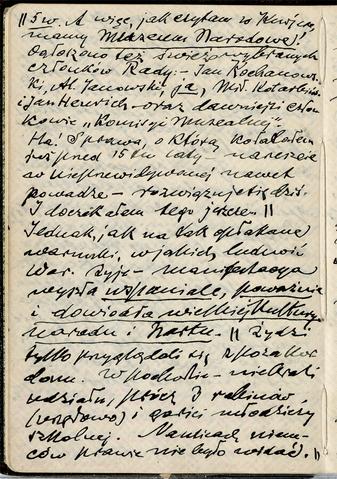 || 5 w. A więc, jak czytam w Kurjerze,
mamy Muzeum Narodowe!
Ogłoszono też świeżo wybranych
członków Rady: - Jan Kochanow-
ski, Al. Janowski, ja, Mił. Kotarbiński
i Jan Heurich - oraz dawniejsi człon-
kowie "Komisyi Muzealnej".
Ha! Sprawa, o którą kołatałem
już przed 15tu laty - nareszcie
w nieprzewidywanej nawet
powadze - rozwiązuje się dziś.
I doczekałem tego jeszcze. ||
Jednak, jak na tak opłakane
warunki, w jakich ludność
War. żyje - manifestacya
wyszła wspaniale, poważnie
i dowiodła wielkiej kultury
narodu i hartu. || Żydzi
tylko przyglądali się z poza kor-
donu. W pochodzie - nie brali
udziału, prócz 3 rabinów,
(urzędowo) i garści młodzieży
szkolnej. Na ulicach niem-
ców prawie nie było widać. ||